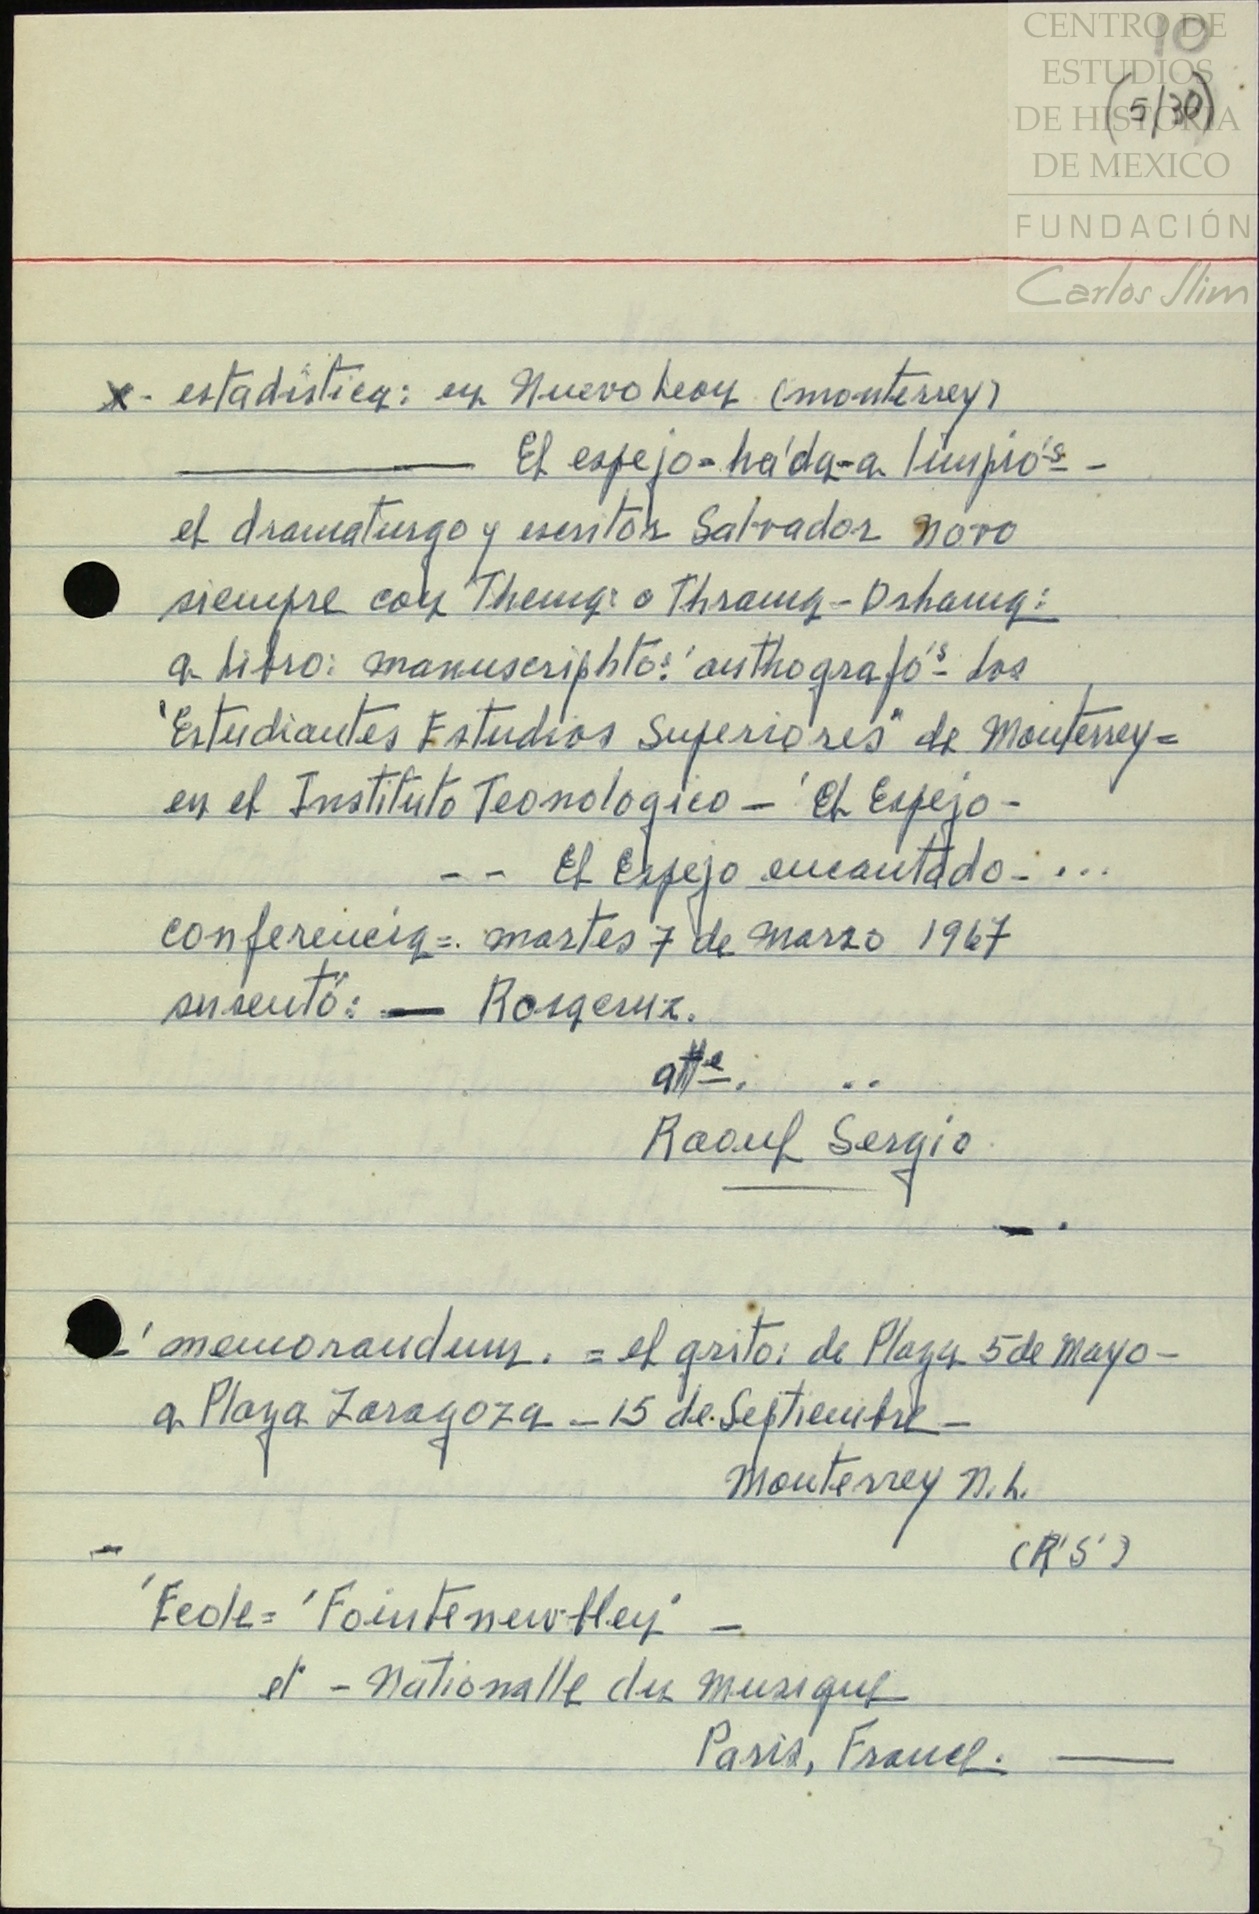 CENTRO DE
ESTUDIOS
DE HISTORIA
DE MEXICO
FUNDACIÓN
Carlos Slim
10
(5/30)
x- estadística: en Nuevo Leon (monterrey)
El espejo=háda-a limpió's -
el dramaturgo y escritor Salvador Novo
siempre con Thema: o Thrama-Dshama:
a Libro: manuscriphto: 'authografó's los
'Estudiantes Estudios Superiores" de Monterrey=
en el Instituto Teonologico - 'El Espejo-
-- El Espejo encantado-...
conferencia=. martes 7 de marzo 1967
susentó: — Rosacruz.
atte. ..
Raoul Sergio.
-.
-'memorandum. = el grito: de Plaza 5 de Mayo-
a Plaza Zaragoza - 15 de Septiembre -
Monterrey N.L.
- (R'S')
'Ecole= 'Fointenew-bley' -
et - Nationalle du musique
Paris, France. —